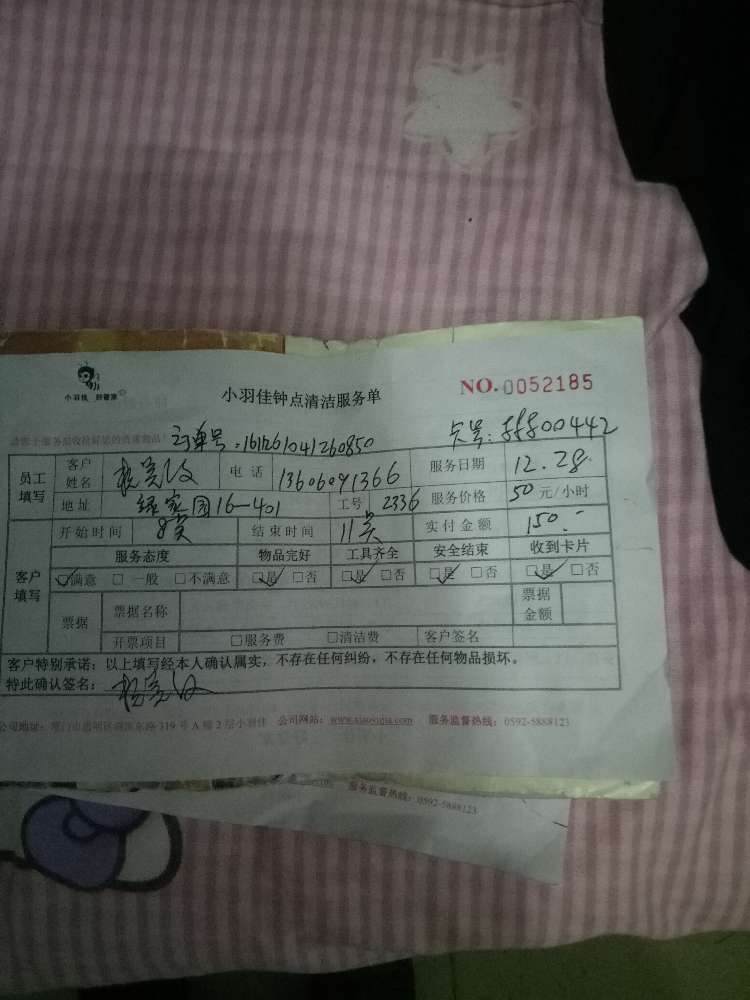 小羽佳 好管家
小羽佳钟点清洁服务单
NO. 0052185
订单号:161261041260850
卡号:fff00442
员工填写
客户姓名
电话 13606091366
服务日期 12.28.
地址 绿家园16-401
工号 2336
服务价格 50元/小时
开始时间 8点
结束时间 11点
实付金额 150.-
客户填写
服务态度 物品完好 工具齐全 安全结束 收到卡片
☑满意 □一般 □不满意 ☑是 □否 ☑是 □否 ☑是 □否 ☑是 □否
票据
票据名称
票据金额
开票项目 □服务费 □清洁费 客户签名
客户特别承诺:以上填写经本人确认属实,不存在任何纠纷,不存在任何物品损坏。
特此确认签名:
公司地址:厦门市思明区湖滨东路319号A幢2层小羽佳 公司网站:www.xiaoyujia.com 服务监督热线:0592-5888123
服务监督热线:0592-5888123